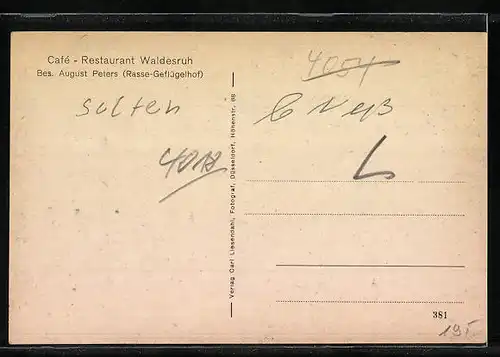 Café - Restaurant Waldesruh
Bes. August Peters (Rasse-Geflügelhof)
selten
4018
Verlag Carl Liesendahl, Fotograf, Düsseldorf, Höhenstr. 88
4054
b Neuß
L
381
195